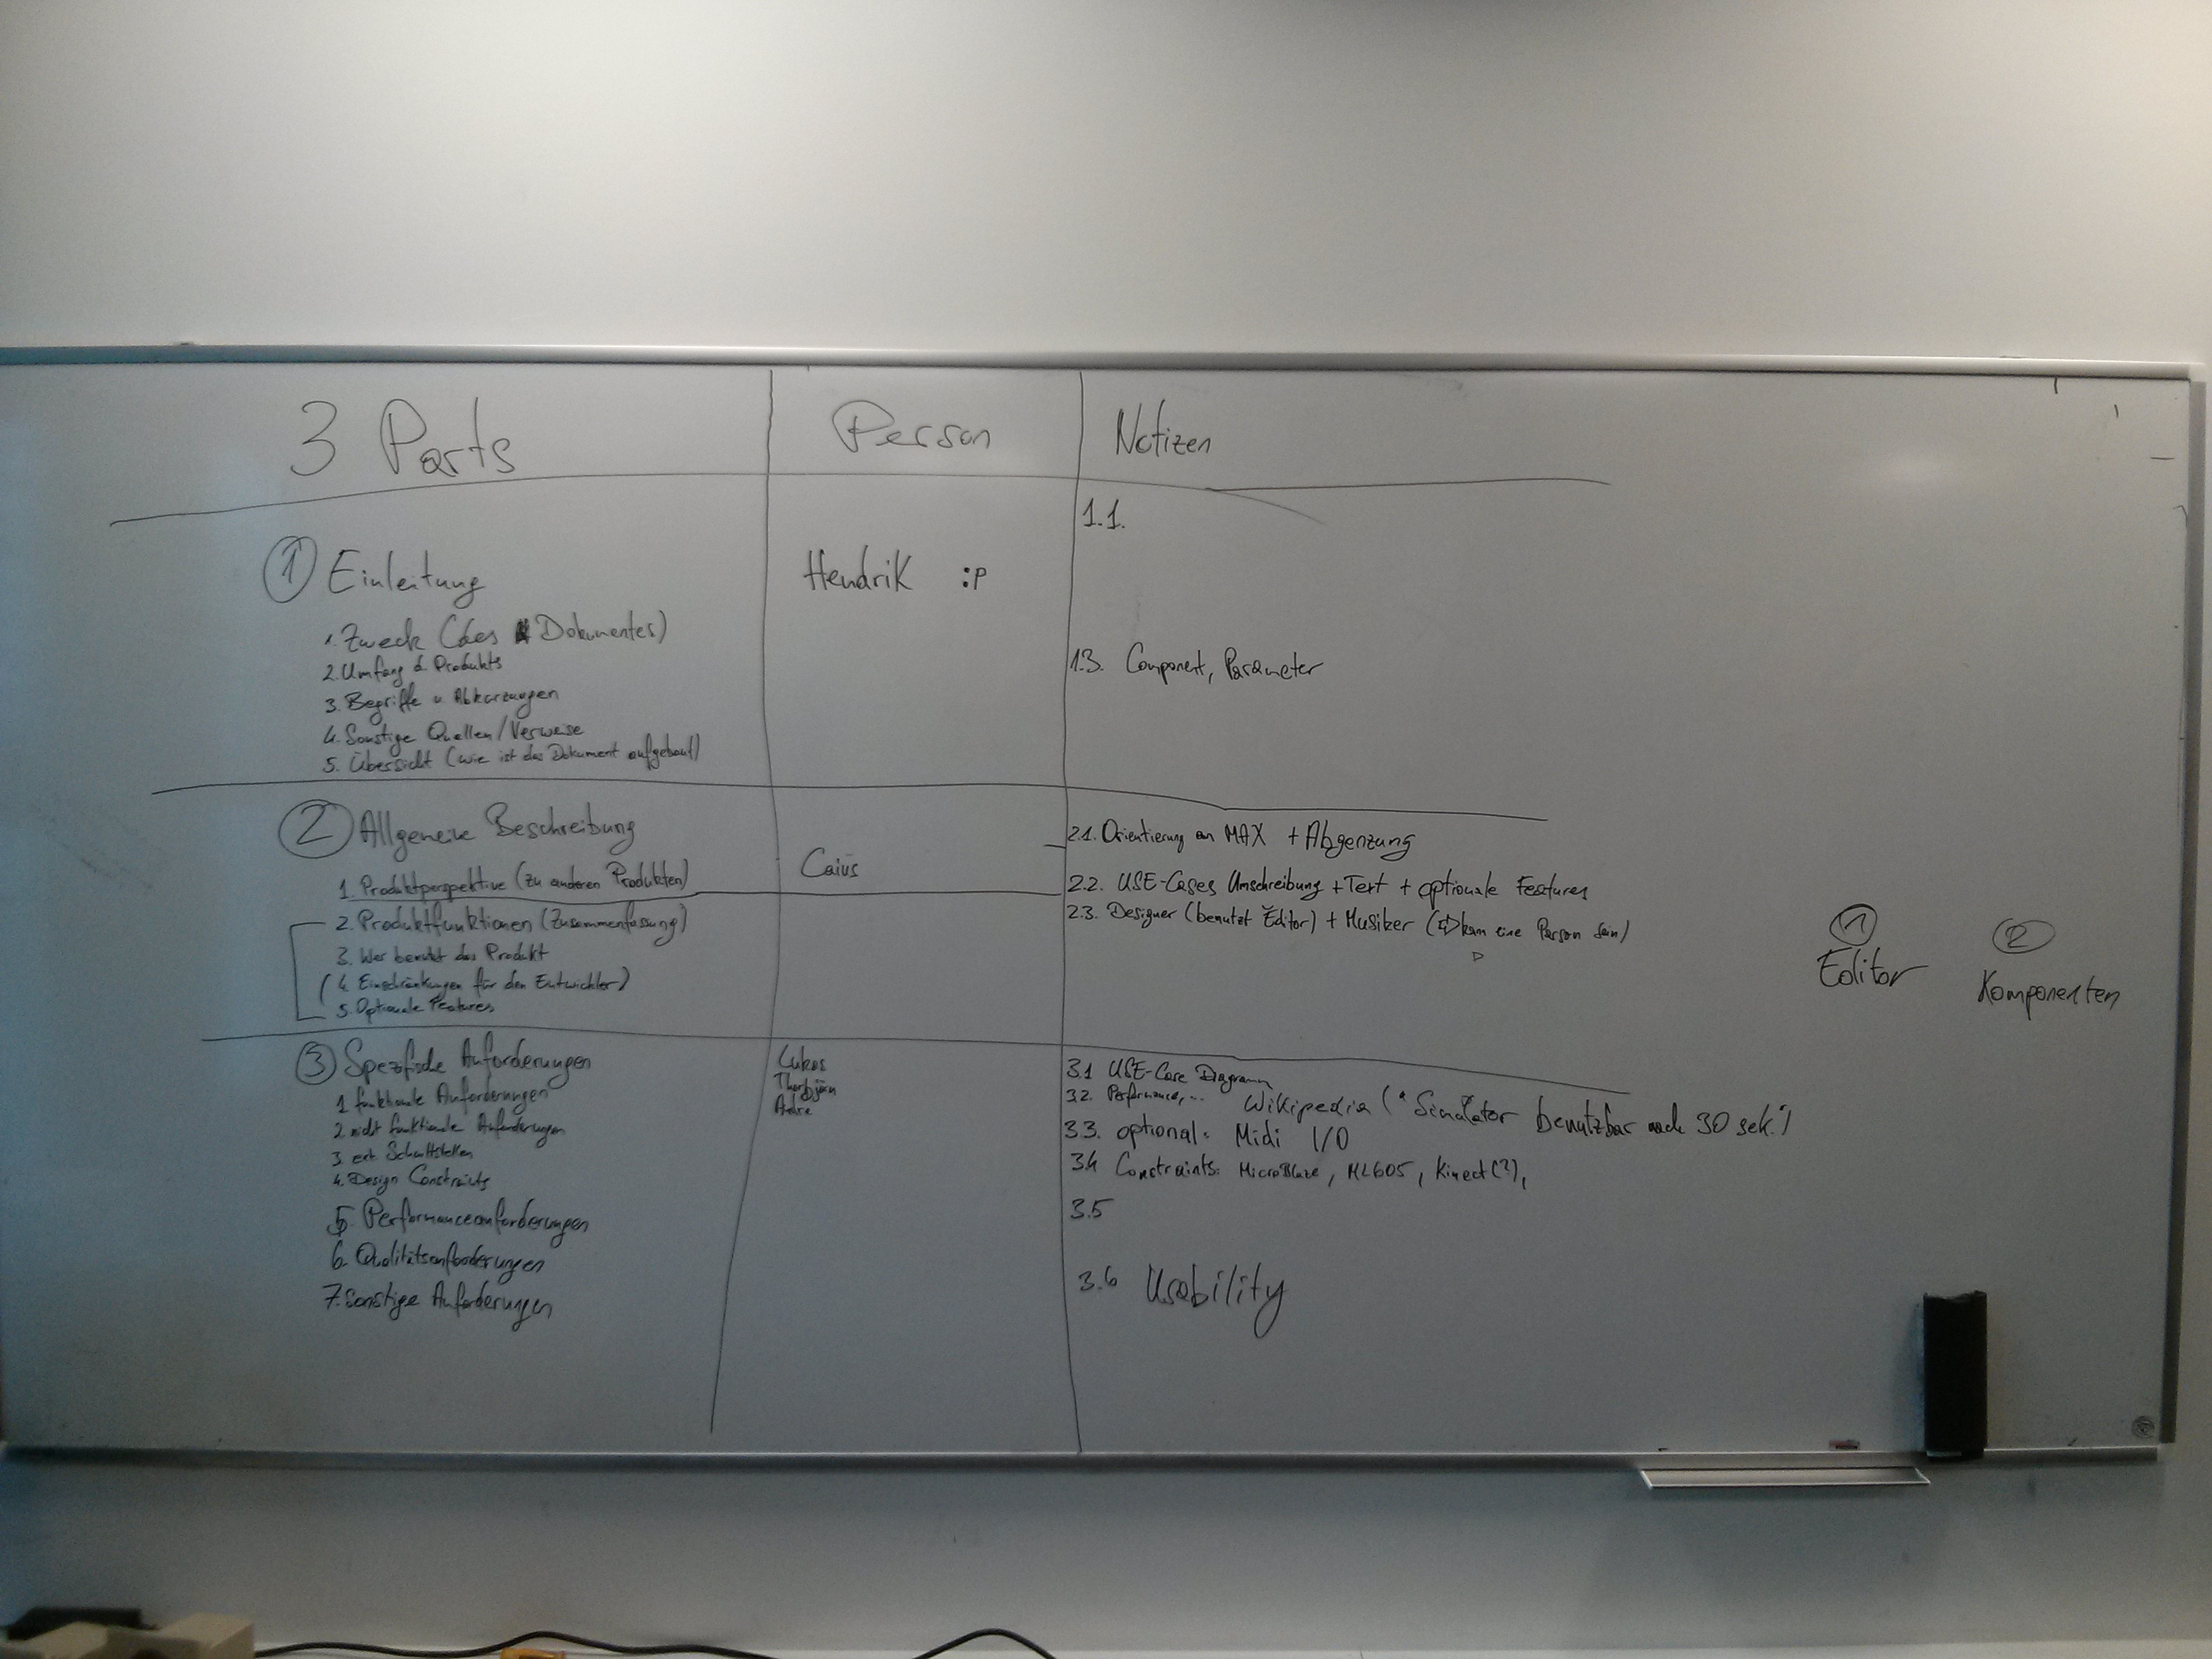 3 Parts
Person
Notizen
1 Einleitung
1. Zweck (des Dokumentes)
2. Umfang d. Produkts
3. Begriffe u Abkürzungen
4. Sonstige Quellen/Verweise
5. Übersicht (wie ist das Dokument aufgebaut)
Hendrik :P
1.1.
1.3. Component, Parameter
2 Allgemeine Beschreibung
1. Produktperspektive (zu anderen Produkten)
2. Produktfunktionen (Zusammenfassung)
3. Wer benutzt das Produkt
(4. Einschränkungen für den Entwickler)
5. Optionale Features
Caius
2.1. Orientierung an MAX + Abgenzung
2.2. USE-Cases Umschreibung + Text + optionale Features
2.3. Designer (benutzt Editor) + Musiker (kann eine Person sein)
1 Editor
2 Komponenten
3 Spezifische Anforderungen
1 funktionale Anforderungen
2. nicht funktionale Anforderungen
3. ext Schnittstellen
4. Design Constraints
5. Performanceanforderungen
6. Qualitätsanforderungen
7. Sonstige Anforderungen
Lukas
Thorbjörn
Andre
3.1 USE-Case Diagramm
3.2. Performance, ... Wikipedia ("Simulator benutzbar nach 30 sek.")
3.3. optional: Midi I/O
3.4 Constraints: MicroBlaze, ML605, Kinect(?),
3.5
3.6 Usability